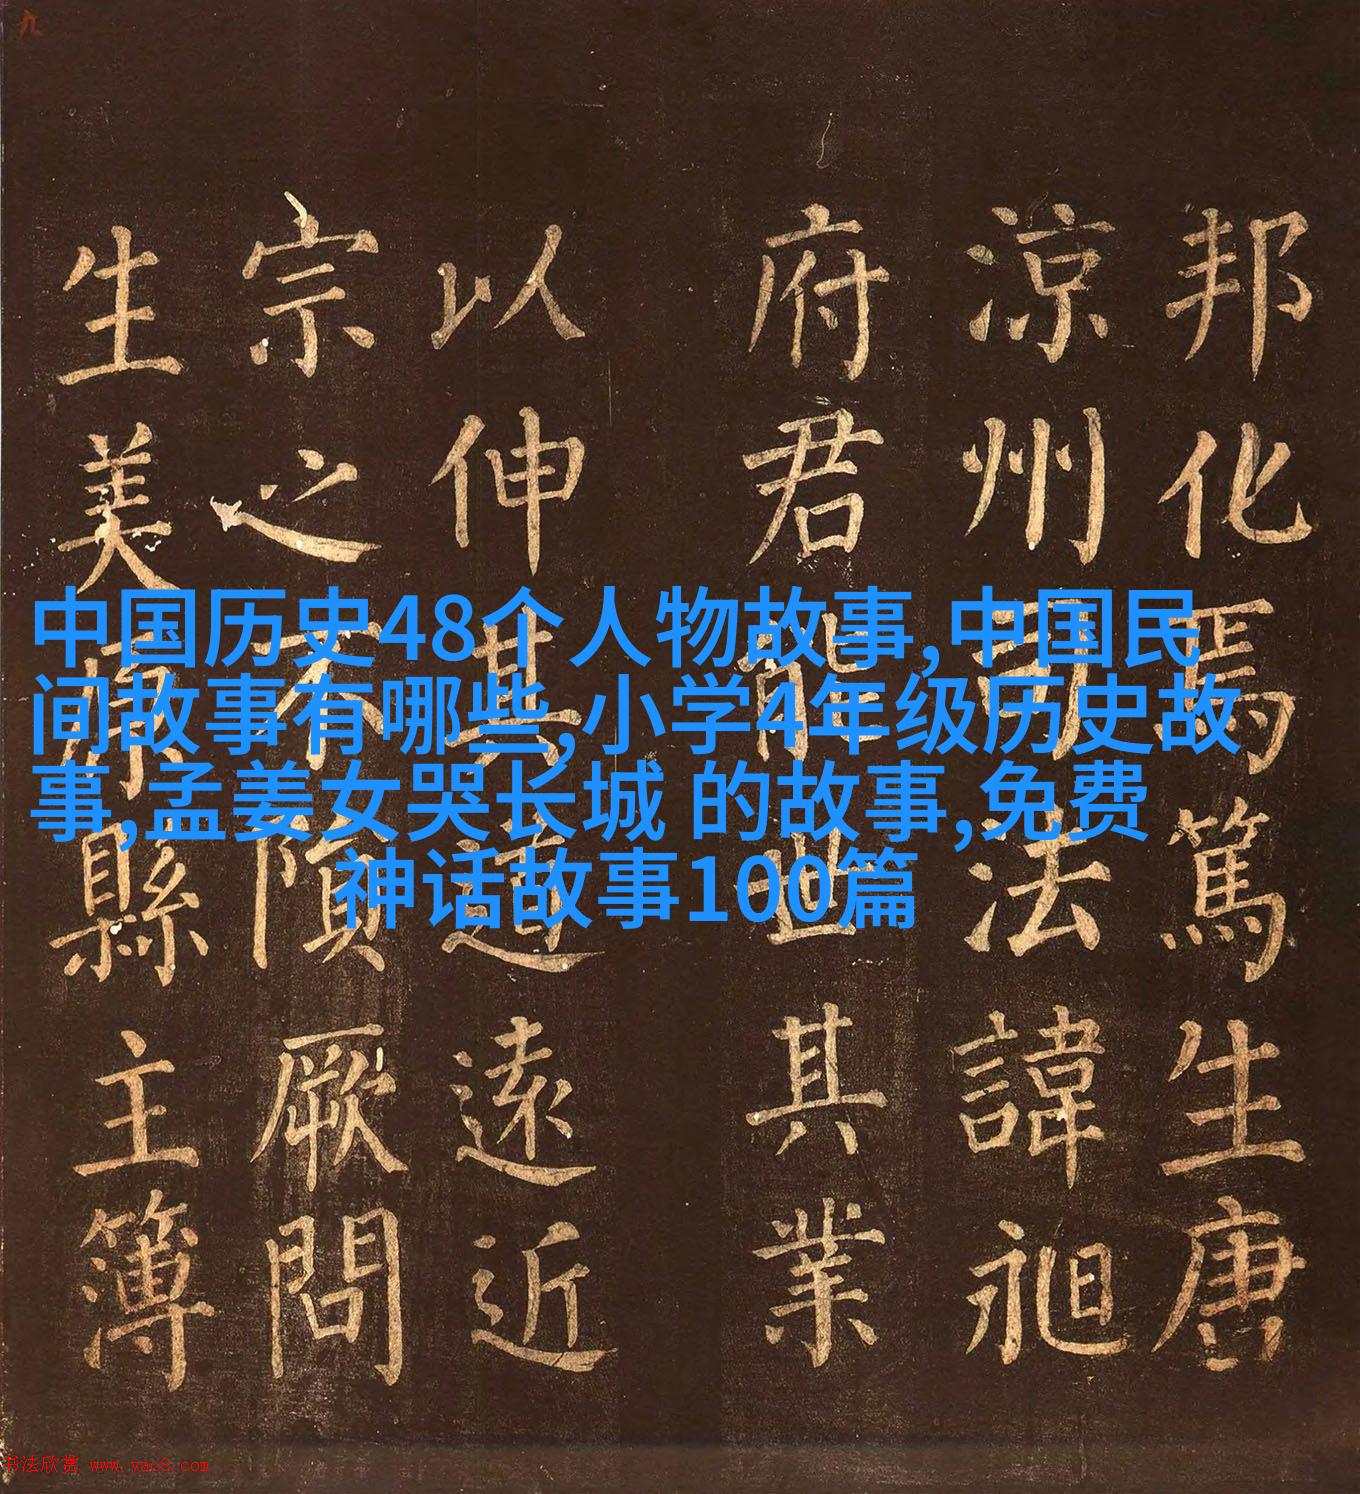 中国历史48个人物故事,中国民
间故事有哪些,小学4年级历史故
事,孟姜女哭长城 的故事,免费
神话故事100篇
邦化焉篤生唐
涼州司法諱昶
府君能世其業
以伸其道遠近
宗之不隕厥問
生美原縣主簿
九
书法欣赏 www.yac8.com